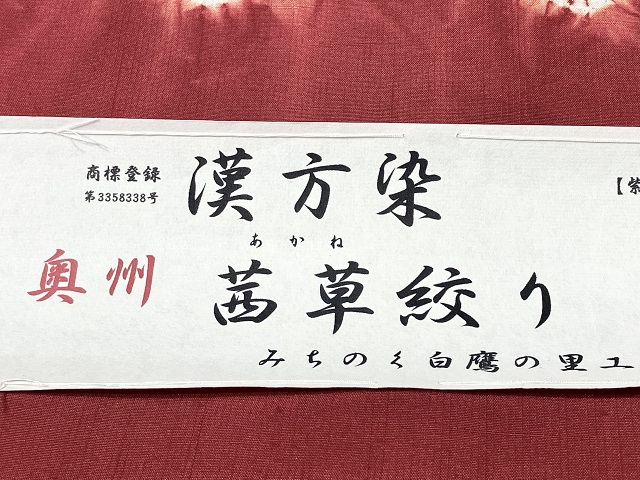 商標登録
第3358338号
漢方染
【紫
あかね
奥州
茜草絞り
みちのく白鷹の里工